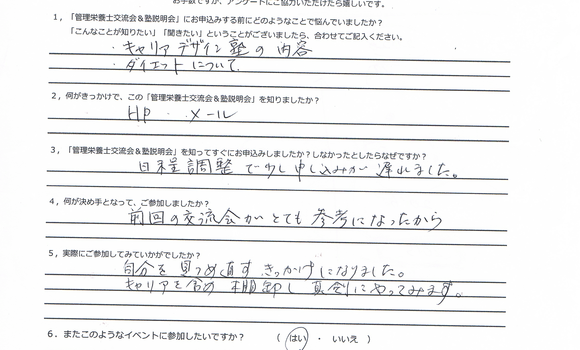 お手数ですが、アンケートにご協力いただけたら嬉しいです。
1，「管理栄養士交流会＆塾説明会」にお申込みする前にどのようなことで悩んでいましたか？
「こんなことが知りたい」「聞きたい」ということがございましたら、合わせてご記入ください。
・キャリアデザイン塾の内容
・ダイエットについて
2，何がきっかけで、この「管理栄養士交流会＆塾説明会」を知りましたか？
HP ・ メール
3，「管理栄養士交流会＆塾説明会」を知ってすぐにお申込みしましたか？しなかったとしたらなぜですか？
日程調整で少し申し込みが遅れました。
4，何が決め手となって、ご参加しましたか？
前回の交流会がとても参考になったから
5，実際にご参加してみていかがでしたか？
自分を見つめ直すきっかけになりました。
キャリアを含め棚卸し真剣にやってみます。
6．またこのようなイベントに参加したいですか？ （ はい ・ いいえ ）